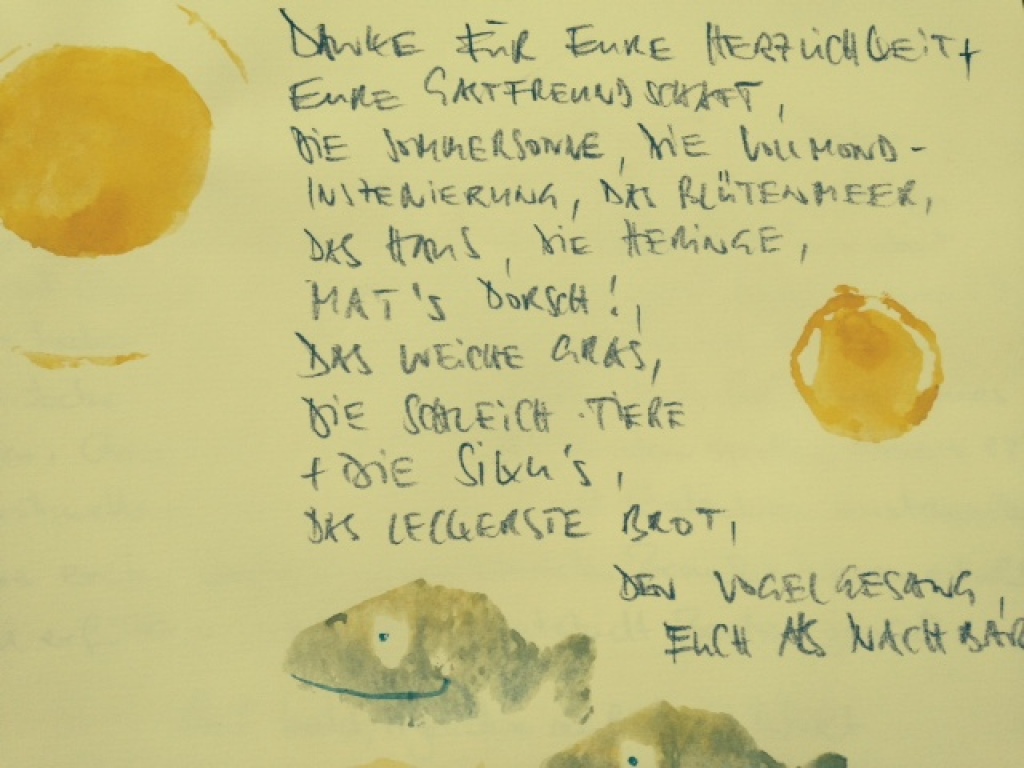 DANKE FÜR EURE HERZLICHKEIT +
EURE GASTFREUNDSCHAFT,
DIE SOMMERSONNE, DIE VOLLMOND-
INSZENIERUNG, DAS BLÜTENMEER,
DAS HAUS, DIE HERINGE,
MAT'S DORSCH!,
DAS WEICHE GRAS,
DIE SCHLEICH-TIERE
+ DIE
DAS LECKERSTE BROT,
DEN VOGELGESANG,
EUCH ALS NACHBAR